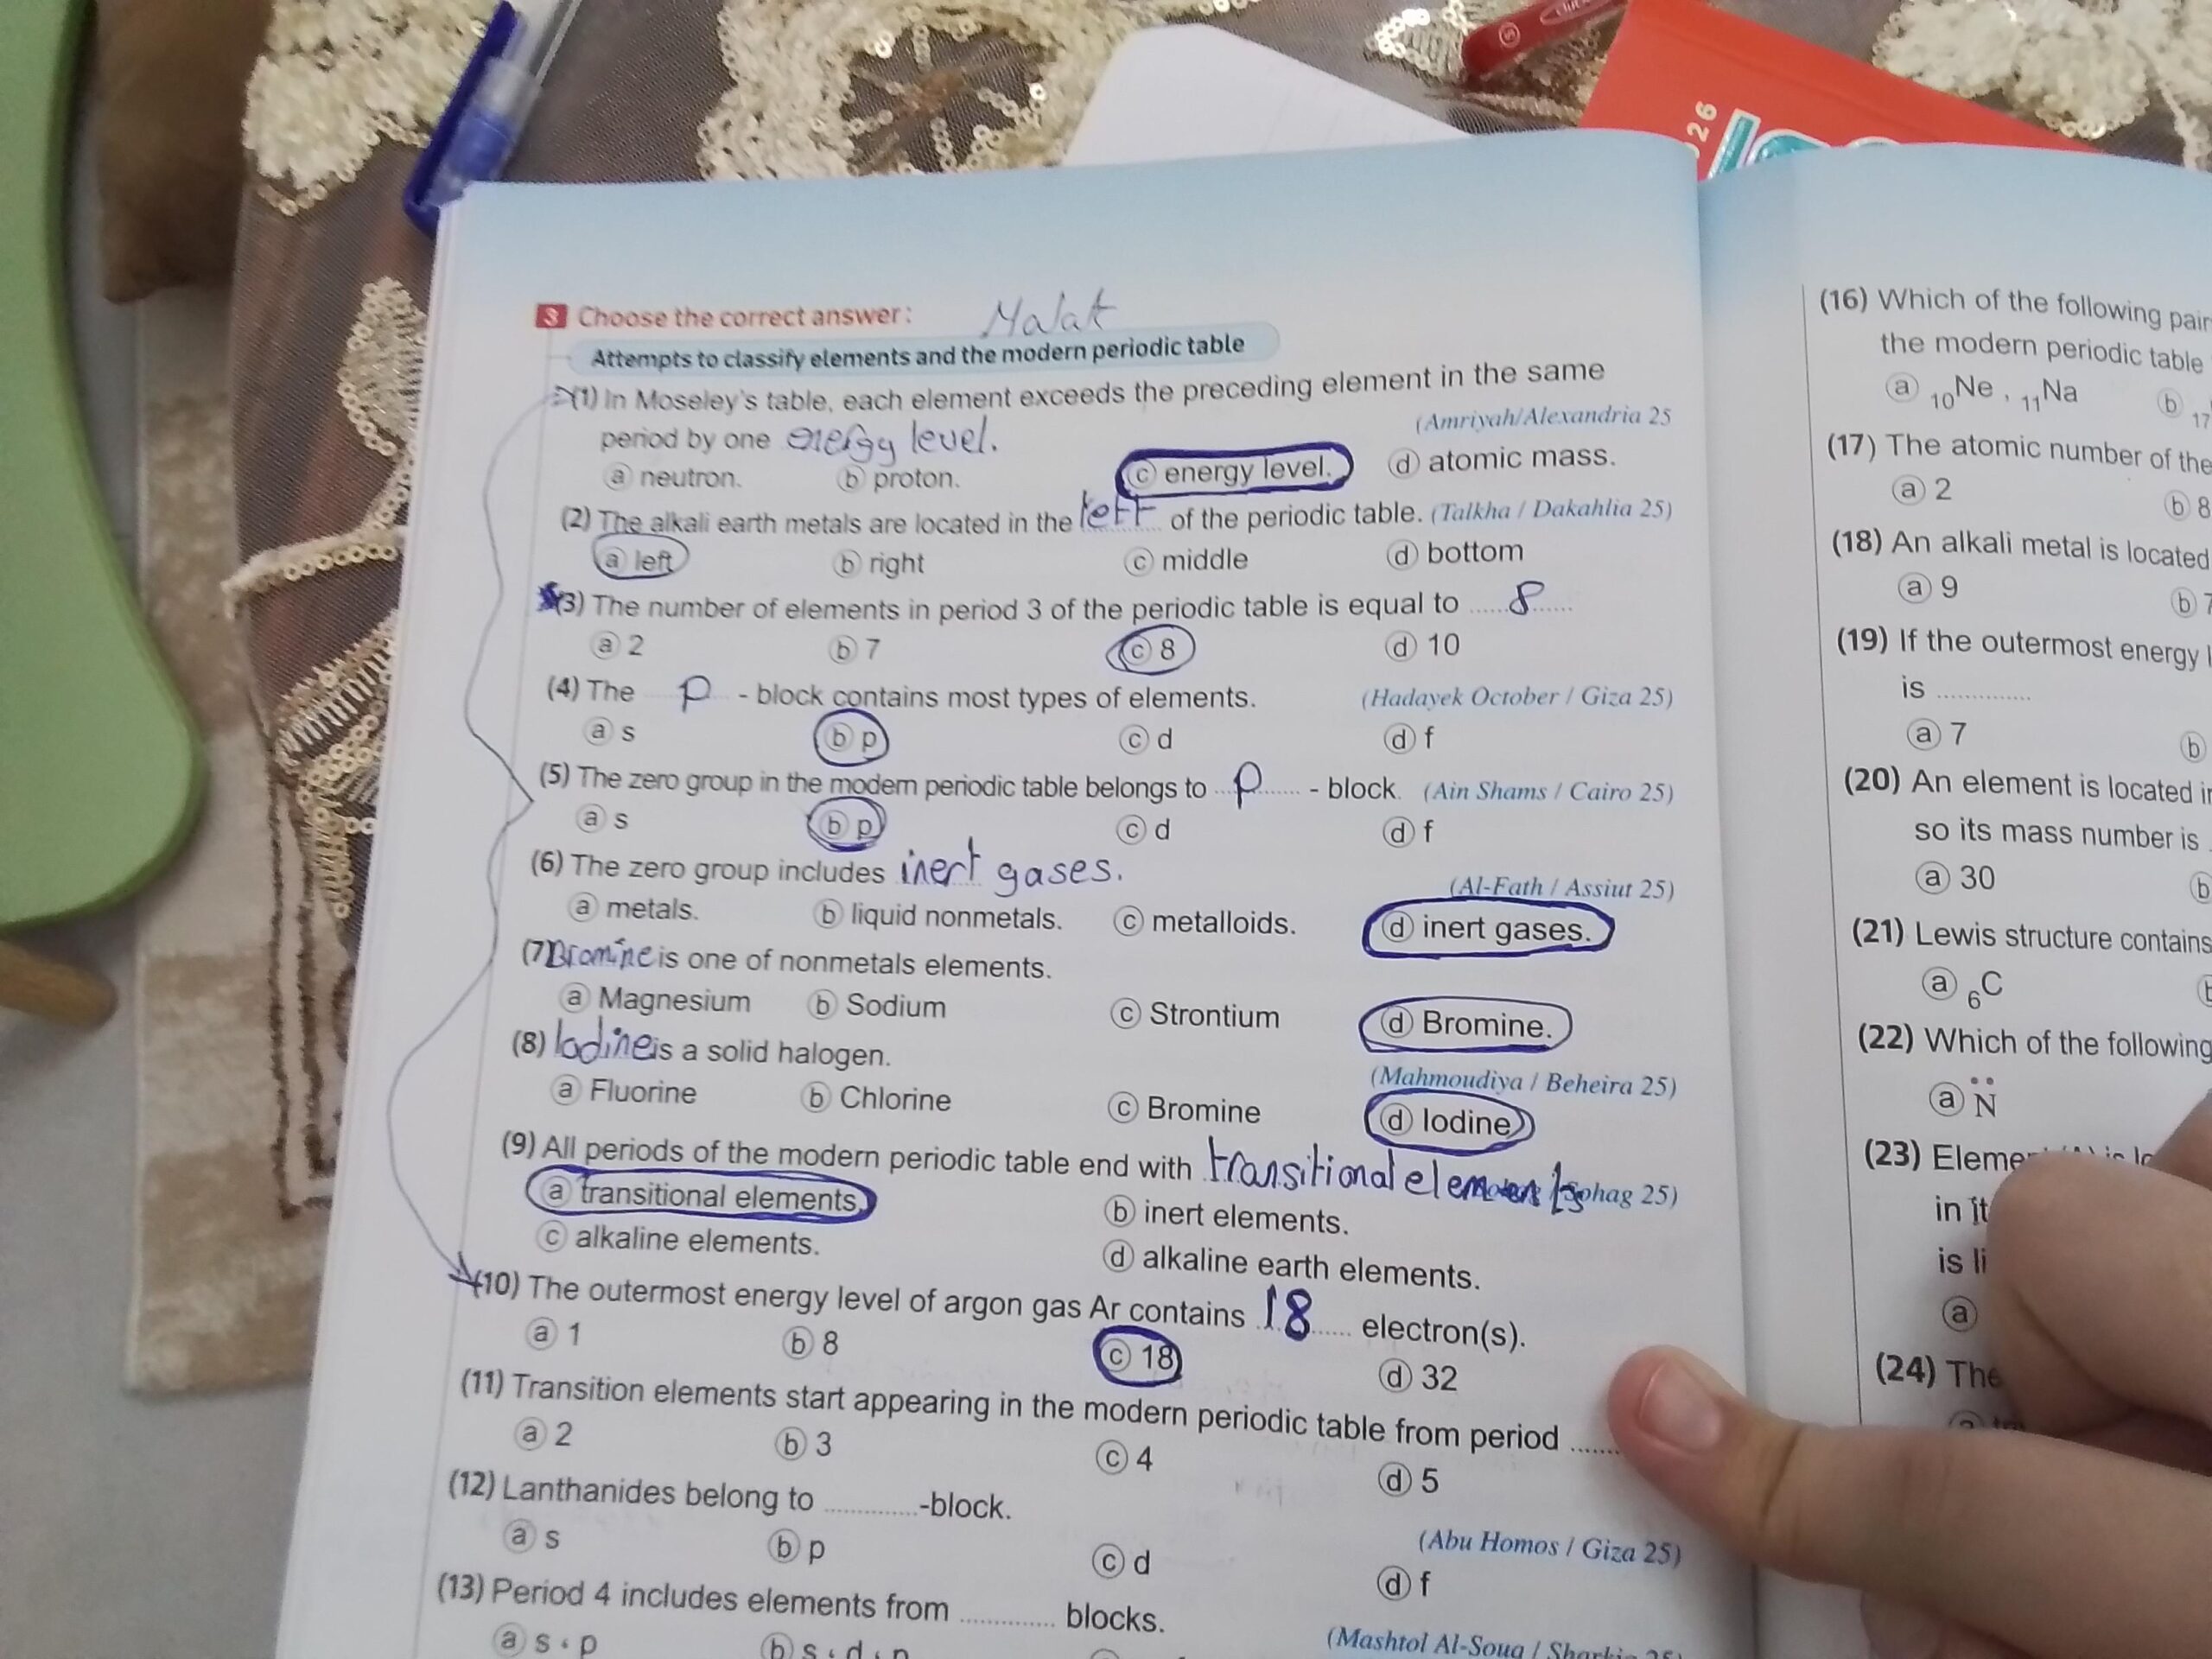 3 Choose the correct answer: Malak
Attempts to classify elements and the modern periodic table
(1) In Moseley's table, each element exceeds the preceding element in the same
period by one energy level. (Amriyah/Alexandria 25
a neutron. b proton. c energy level. d atomic mass.
(2) The alkali earth metals are located in the left of the periodic table. (Talkha / Dakahlia 25)
a left b right c middle d bottom
(3) The number of elements in period 3 of the periodic table is equal to ......8......
a 2 b 7 c 8 d 10
(4) The p - block contains most types of elements. (Hadayek October / Giza 25)
a s b p c d d f
(5) The zero group in the modern periodic table belongs to p - block. (Ain Shams / Cairo 25)
a s b p c d d f
(6) The zero group includes inert gases.
(Al-Fath / Assiut 25)
a metals. b liquid nonmetals. c metalloids. d inert gases.
(7) Bromine is one of nonmetals elements.
a Magnesium b Sodium c Strontium d Bromine.
(8) Iodine is a solid halogen.
(Mahmoudiya / Beheira 25)
a Fluorine b Chlorine c Bromine d Iodine
(9) All periods of the modern periodic table end with transitional elements
Sohag 25)
a transitional elements. b inert elements.
c alkaline elements. d alkaline earth elements.
(10) The outermost energy level of argon gas Ar contains 18 electron(s).
a 1 b 8 c 18 d 32
(11) Transition elements start appearing in the modern periodic table from period .......
a 2 b 3 c 4 d 5
(12) Lanthanides belong to .............-block.
(Abu Homos / Giza 25)
a s b p c d d f
(13) Period 4 includes elements from ............. blocks.
(Mashtol Al-Souq /
a s , p b s , d , p
26
(16) Which of the following
the modern periodic table
a 10Ne , 11Na b 17
(17) The atomic number of the
a 2 b 8
(18) An alkali metal is located
a 9 b 7
(19) If the outermost energy
is .............
a 7 b
(20) An element is located
so its mass number is
a 30 b
(21) Lewis structure contains
a 6C
(22) Which of the following
a N
(23)
in it
is
a
(24) The